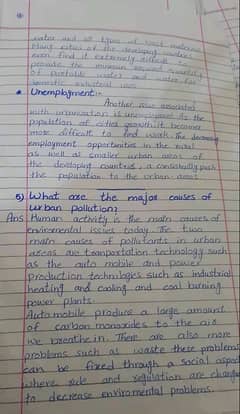 water and all types of waste material
Many cities of the developing world
even find it extremely difficult
provide the minimum required quantity
of portable water and water for
domestic industrial uses.
• Unemployment:-
Another issue associated
with urbanization is unemployment. As the
population of cities growth, it becomes
more difficult to find work. The decreasing
employment opportunities in the rural
as well as smaller urban areas of
the developing countries, a constantly push
the population to the urban areas.
5) What are the major causes of
urban pollution?
Ans Human activity is the main causes of
enviromental issues today. The two
main causes of pollutants in urban
areas are transportation technology such
as the auto mobile and power
production technologies such as industrial
heating and cooling and coal burning
power plants.
Automobile produce a large amount
of carbon monoxides to the air
we breathe in. There are also more
problems such as waste these problems
can be fixed through a social aspect
where rule and regulation are change
to decrease enviromental problems.